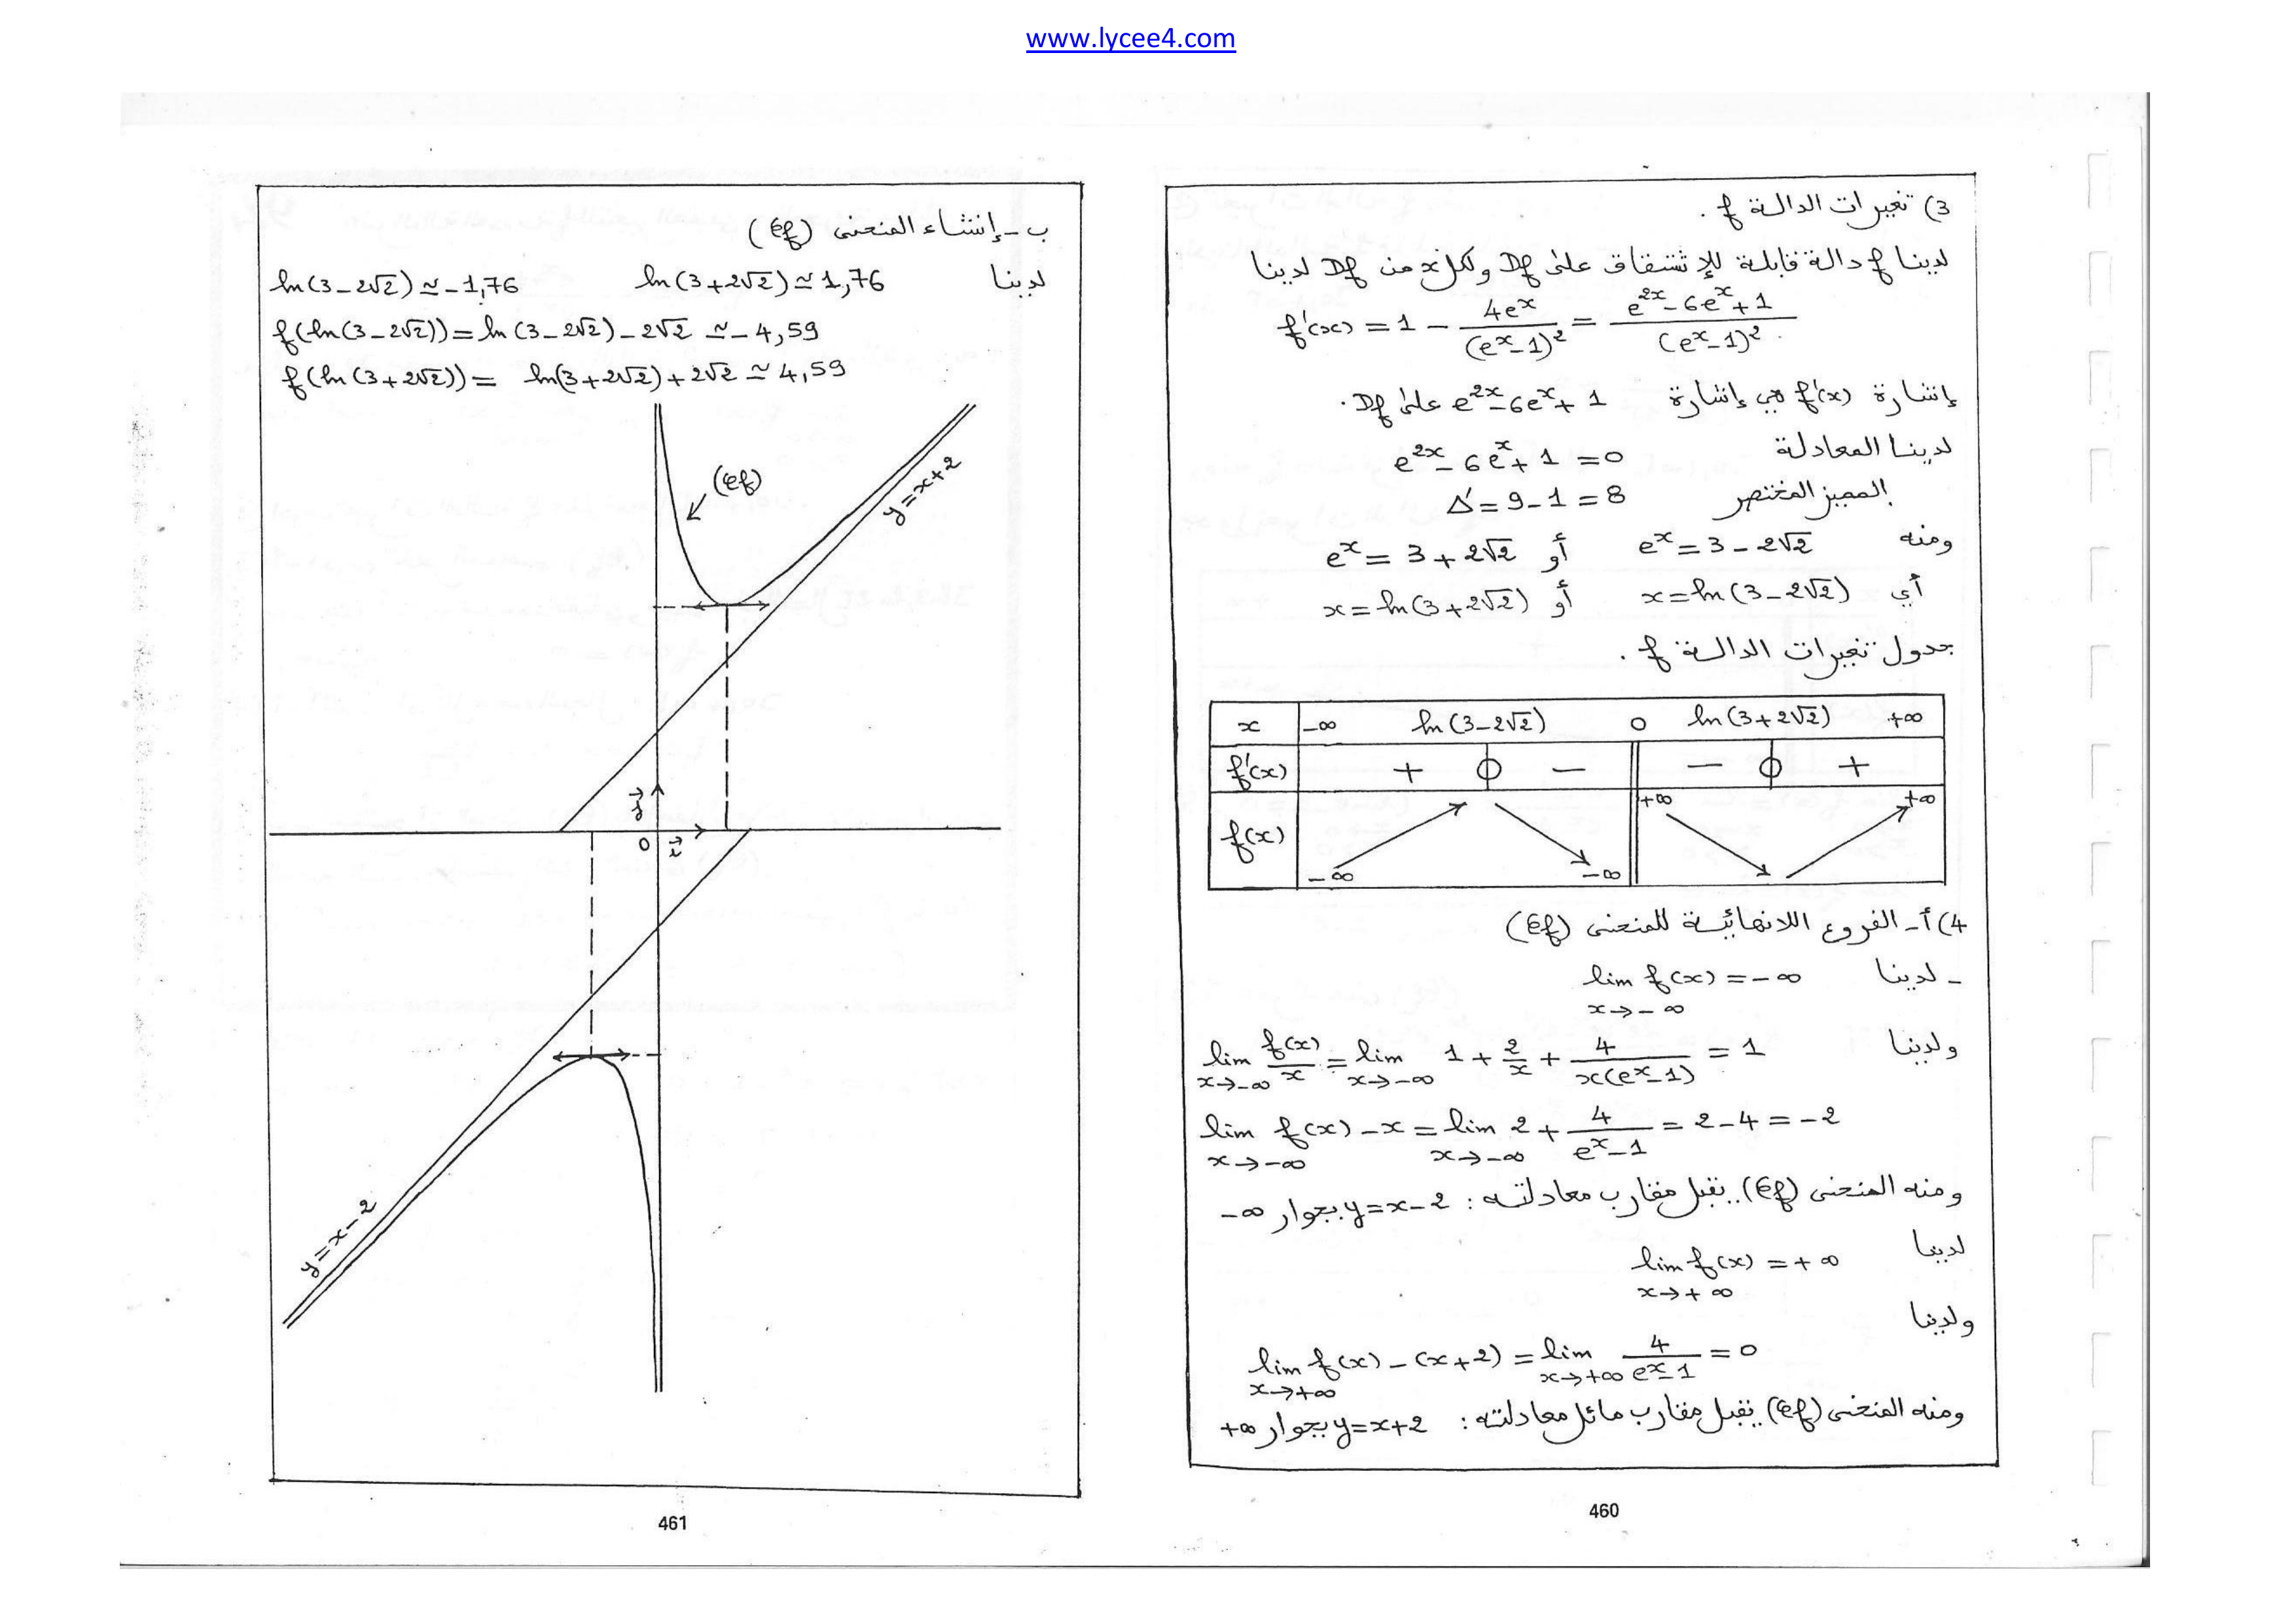 www.lycee4.com
3) تغيرات الدالة f .
لدينا f دالة قابلة للإشتقاق على Df ولكل x من Df لدينا
f'(x) = 1 - 4e^x/(e^x-1)² = (e^2x - 6e^x + 1)/(e^x-1)² .
إشارة f'(x) هي إشارة e^2x - 6e^x + 1 على Df .
لدينا المعادلة e^2x - 6e^x + 1 = 0
المميز المختصر Δ' = 9 - 1 = 8
ومنه e^x = 3 - 2√2 أو e^x = 3 + 2√2
أي x = ln(3-2√2) أو x = ln(3+2√2)
جدول تغيرات الدالة f .
x -∞ ln(3-2√2) 0 ln(3+2√2) +∞
f'(x) + 0 - - 0 +
f(x) -∞ -∞ +∞ +∞
4) أ- الفروع اللانهائية للمنحنى (Cf)
- لدينا lim f(x) = -∞
x→-∞
ولدينا lim f(x)/x = lim 1 + 2/x + 4/(x(e^x-1)) = 1
x→-∞ x→-∞
lim f(x) - x = lim 2 + 4/(e^x-1) = 2-4 = -2
x→-∞ x→-∞
ومنه المنحنى (Cf) يقبل مقارب معادلته : y=x-2 بجوار -∞
لدينا
lim f(x) = +∞
x→+∞
ولدينا
lim f(x) - (x+2) = lim 4/(e^x-1) = 0
x→+∞ x→+∞
ومنه المنحنى (Cf) يقبل مقارب مائل معادلته : y=x+2 بجوار +∞
460
ب- إنشاء المنحنى (Cf)
لدينا ln(3+2√2) ≃ 1,76 ln(3-2√2) ≃ -1,76
f(ln(3-2√2)) = ln(3-2√2) - 2√2 ≃ -4,59
f(ln(3+2√2)) = ln(3+2√2) + 2√2 ≃ 4,59
(Cf)
y=x+2
j
0 i
y=x-2
461